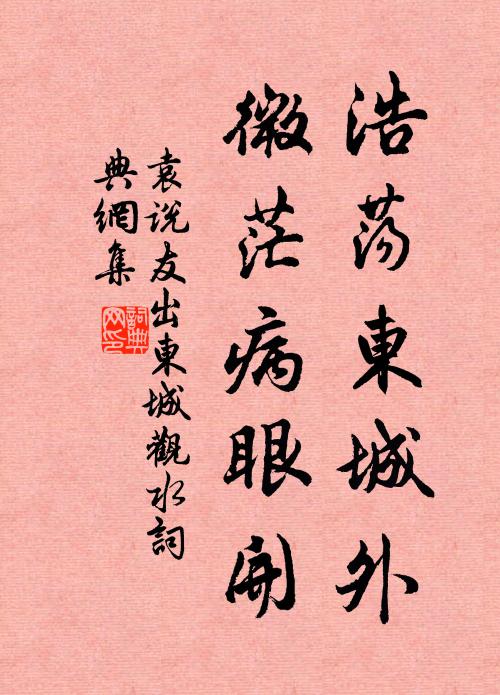 浩荡東城外
微茫病眼開
袁说友出東城觀水詞
典網集
詞典
网印